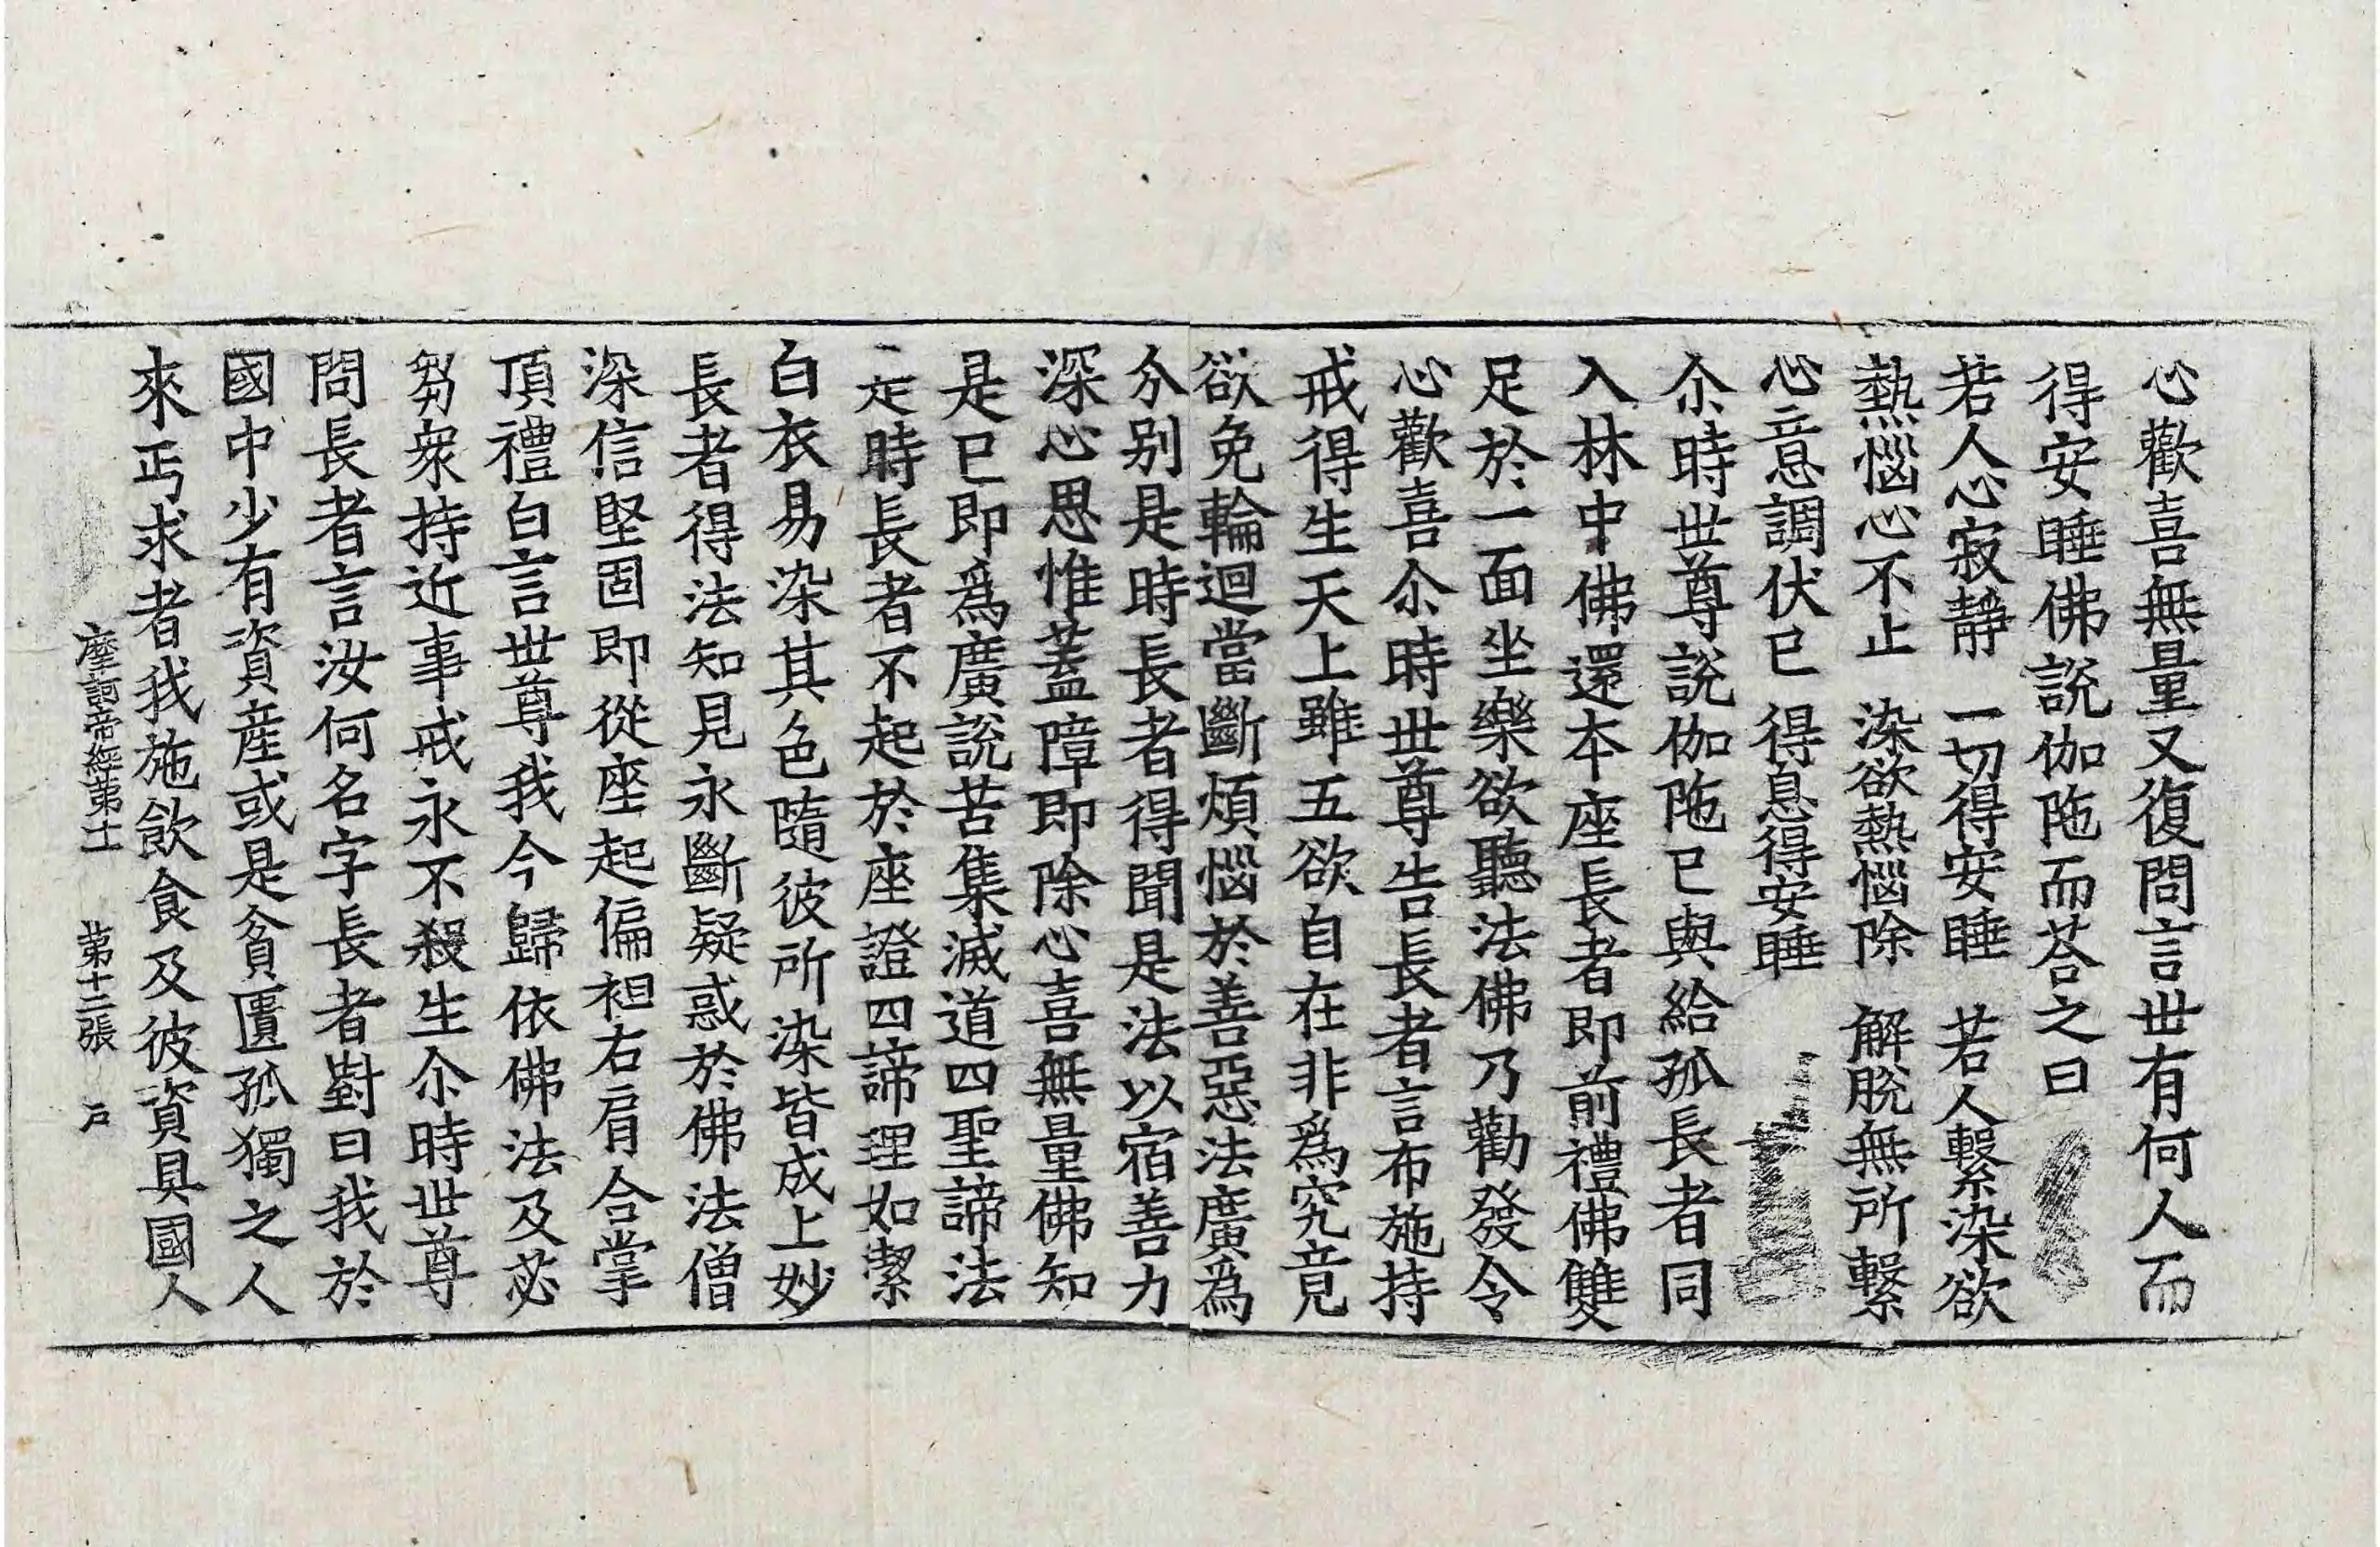 心歡喜無量又復問言世有何人而
得安睡佛說伽陁而荅之曰
若人心寂靜　一切得安睡　若人繫染欲
熱惱心不止　染欲熱惱除　解脫無所繫
心意調伏已　得息得安睡
尒時世尊說伽陁已與給孤長者同
入林中佛還本座長者即前禮佛雙
足於一面坐樂欲聽法佛乃勸發令
心歡喜尒時世尊告長者言布施持
戒得生天上雖五欲自在非為究竟
欲免輪迴當斷煩惱於善惡法廣為
分別是時長者得聞是法以宿善力
深心思惟蓋障即除心喜無量佛知
是已即為廣說苦集滅道四聖諦法
是時長者不起於座證四諦理如潔
白衣易染其色隨彼所染皆成上妙
長者得法知見永斷疑惑於佛法僧
深信堅固即從座起偏袒右肩合掌
頂禮白言世尊我今歸依佛法及苾
芻衆持近事戒永不殺生尒時世尊
問長者言汝何名字長者對曰我於
國中少有資産或是貧匱孤獨之人
來丐求者我施飲食及彼資具國人
摩訶帝經第十一　第十二張　戶